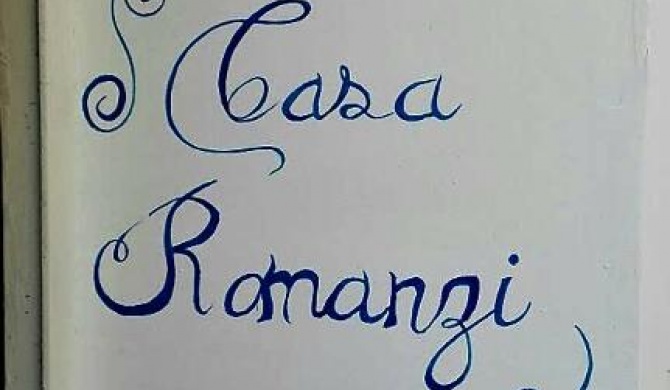 Casa
Romanzi